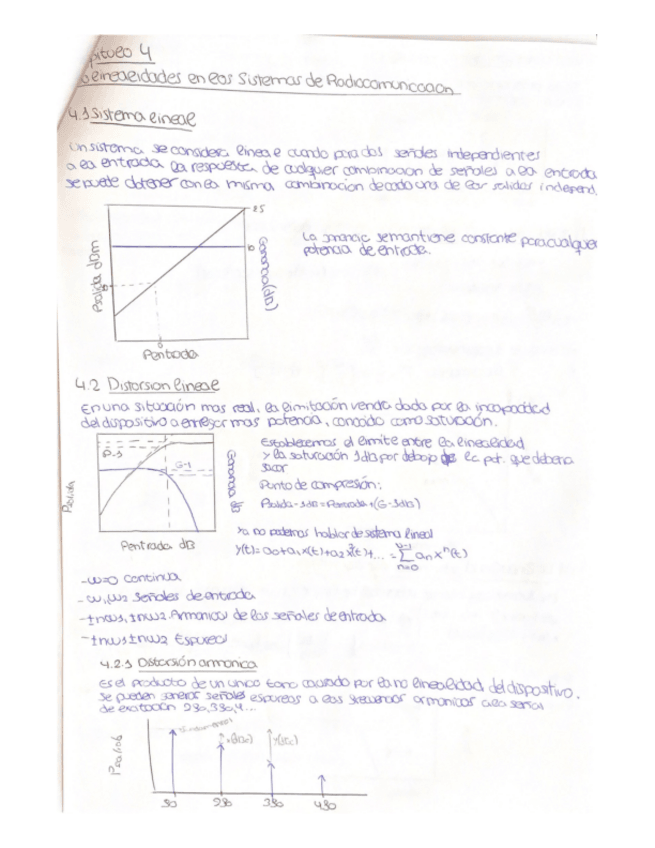 pitulo 4
linealidades en los Sistemas de Radiocomunicacion
4.1 Sistema lineal
Un sistema se considera lineal cuando para dos señales independientes
a la entrada la respuesta de cualquier combinacion de señales a la entrada
se puede obtener con la misma combinacion de cada una de las salidas independ.
25
La ganancia se mantiene constante para cualquier
potencia de entrada.
10
Psalida dBm
Ganancia (dB)
0
Pentrada
4.2 Distorsion lineal
En una situación mas real, la limitación vendra dada por la incapacidad
del dispositivo a entregar mas potencia, conocido como saturación.
P-1
G-1
Psalida
Ganancia dB
Pentrada dB
Establecemos el limite entre la linealidad
y la saturación 1dB por debajo de la pot. que deberia
sacar
Punto de compresión:
Psalida-1dB = Pentrada + (G-1dB)
Ya no podemos hablar de sistema lineal
y(t) = a0 + a1 x(t) + a2 x²(t) + ... = ∑ an x^n(t)
n=0
-ω=0 continua
-ω1, ω2 Señales de entrada
-±nω1, ±nω2 Armonicos de las señales de entrada
-±nω1±nω2 Espureo
4.2.1 Distorsión armonica
Es el producto de un unico tono causado por la no linealidad del dispositivo.
Se pueden generar señales espureas a las frecuencias armonicas a la señal
de excitación 2f0, 3f0, 4...
Psalida
f0 2f0 3f0 4f0